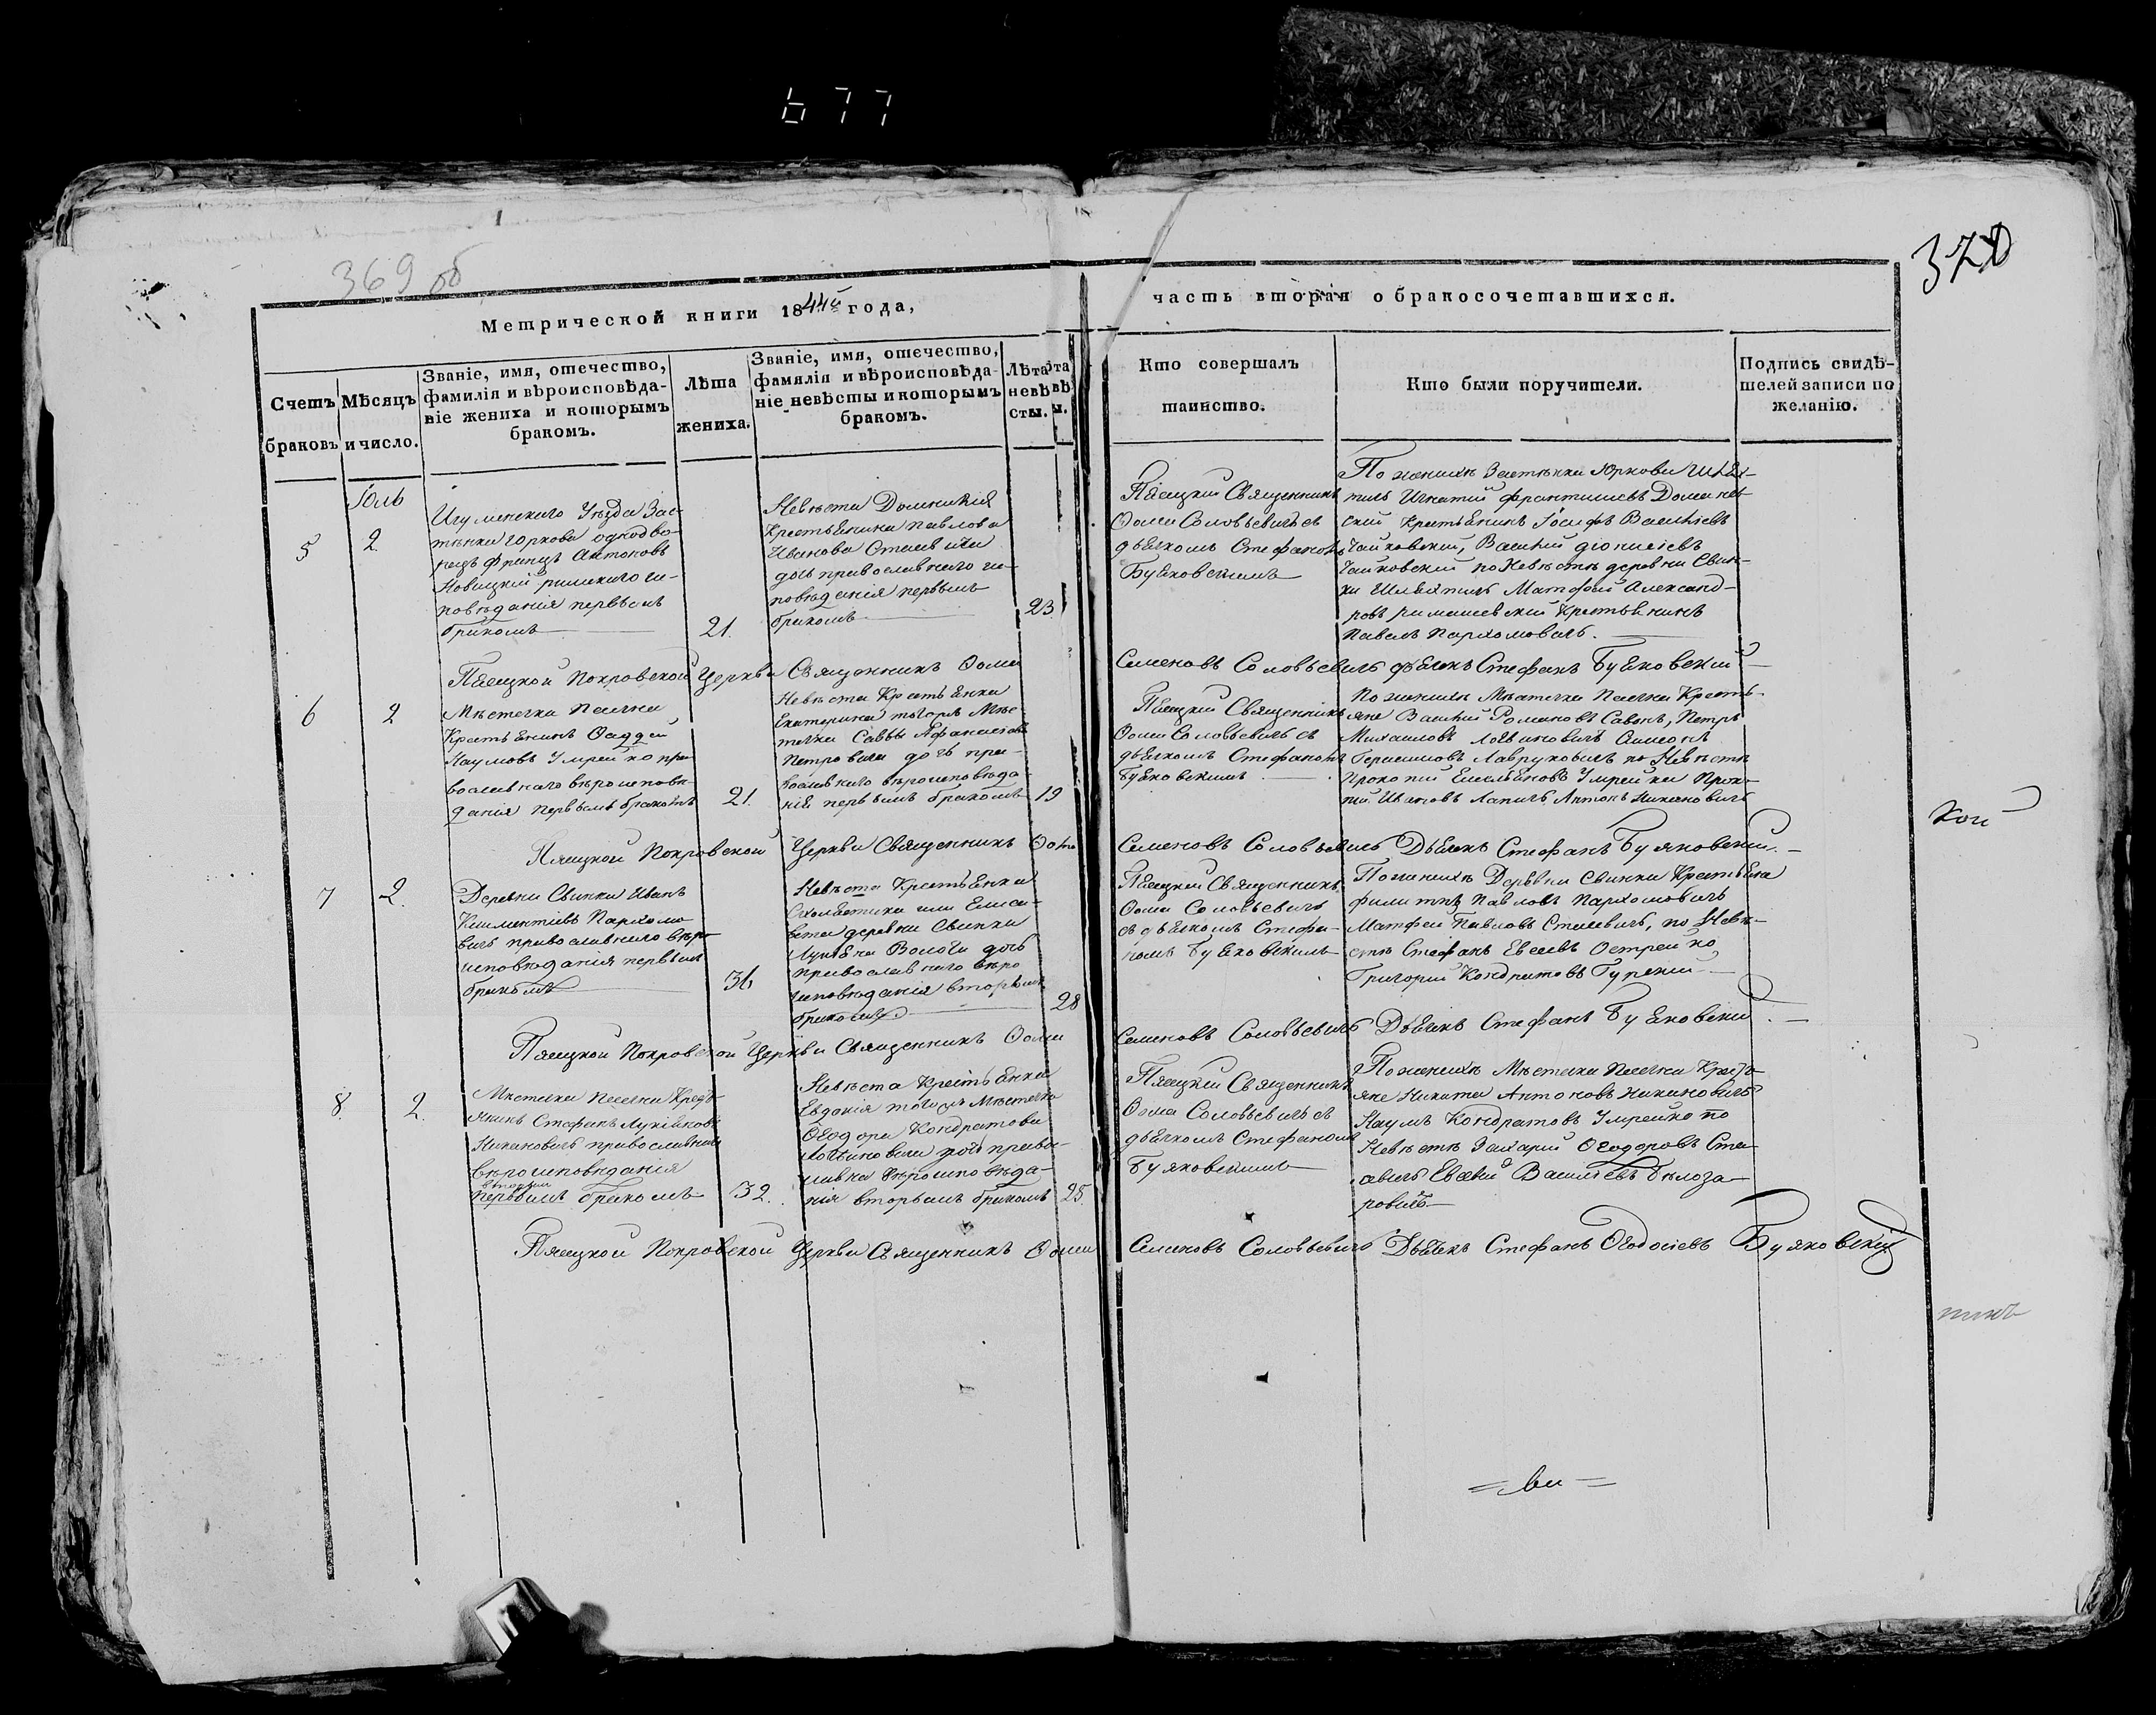 677
369 об
370
Метрической книги 1844го года,
часть вторая о бракосочетавшихся.
Счетъ браковъ
Мѣсяцъ и число.
Званіе, имя, отечество,
фамилія и вѣроисповѣда-
ніе жениха и которымъ
бракомъ.
Лѣта
жениха.
Званіе, имя, отечество,
фамилія и вѣроисповѣда-
ніе невѣсты и которымъ
бракомъ.
Лѣта
невѣ
сты.
Кто совершалъ
таинство.
Кто были поручители.
Подпись свидѣ-
телей записи по
желанію.
Іюль
5
2
Игуменскаго Уѣзда Зас-
тѣнка Юркова однодво-
рецъ Францъ Антоновъ
Новицкій римскаго ис-
повѣданія первымъ
бракомъ
21.
Невѣста Домникія
Крестьянина Павлова
Иванова
дочь православнаго ис-
повѣданія первымъ
бракомъ
23
Священникъ
Ѳома Соловьевичъ съ
дьячкомъ Стефаномъ
Буяковскимъ
По женихѣ Застѣнка Юркова Шлях-
тичъ Игнатій Францишевъ
Крестьянинъ Іосифъ Васильевъ
Чайковскій, Василій Діонисіевъ
Чайковскій по Невѣстѣ деревни Свин-
ки Шляхтичъ Матфей Александ-
ровъ Римашевскій Крестьянинъ
Павелъ Пархомовичъ.
Покровской Церкви Священникъ Ѳома Семеновъ Соловьевичъ дьячекъ Стефанъ Буяковскій
6
2
Мѣстечка Песочна
Крестьянинъ Ѳаддей
Наумовъ Умрейко пра-
вославнаго вѣроисповѣ-
данія первымъ бракомъ
21.
Невѣста Крестьянка
Екатерина тогожъ Мѣс-
течка Саввы Афанасьева
Петровича дочь пра-
вославнаго вѣроисповѣда-
нія первымъ бракомъ
19
Священникъ
Ѳома Соловьевичъ съ
дьячкомъ Стефаномъ
Буяковскимъ
По женихѣ Мѣстечка Песочна Кресть-
яне Василій Романовъ Савонъ, Петръ
Михайловъ
Герасимовъ Лавруковичъ по Невѣстѣ
Прокопій Емельяновъ Умрейка Проко-
пій Ивановъ Лапичъ Антонъ Никановичъ
Покровской Церкви Священникъ Ѳома Семеновъ Соловьевичъ Дьячекъ Стефанъ Буяковскій.
кой
7
2.
Деревни Свинки Иванъ
Климентіевъ Пархомо-
вичъ православнаго вѣро-
исповѣданія первымъ
бракомъ
36
Невѣста Крестьянка
или Елиса-
вета деревни Свинки
Лукьяна Волоти дочь
православнаго вѣро
исповѣданія вторымъ
бракомъ
28
Священникъ
Ѳома Соловьевичъ
съ дьячкомъ Стефа-
номъ Буяковскимъ
По женихѣ Деревни Свинки Крестьяна
Филиппъ Павловъ Пархомовичъ
Матфей Павловъ, по Невѣ-
стѣ Стефанъ Евсеевъ Острейко
Григорій Кондратовъ
Покровской Церкви Священникъ Ѳома Семеновъ Соловьевичъ Дьячекъ Стефанъ Буяковскій.
8.
2.
Мѣстечка Песочна Кресть-
янинъ Стефанъ Лукьяновъ
Никановичъ православнаго
вѣроисповѣданія
вторымъ
первымъ бракомъ
32.
Невѣста Крестьянка
Евдокія тогожъ Мѣстечка
Ѳеодора Кондратова
дочь право-
славна вѣроисповѣда-
нія вторымъ бракомъ
25.
Священникъ
Ѳома Соловьевичъ съ
дьячкомъ Стефаномъ
Буяковскимъ
По женихѣ Мѣстечка Песочна Кресть-
яне Никита Антоновъ Никановичъ
Наумъ Кондратовъ Умрейко по
Невѣстѣ Захарій Ѳеодоровъ
Василіевъ Бѣлоза-
ровичъ
Покровской Церкви Священникъ Ѳома Семеновъ Соловьевичъ Дьячекъ Стефанъ Ѳеодосіевъ Буяковскій